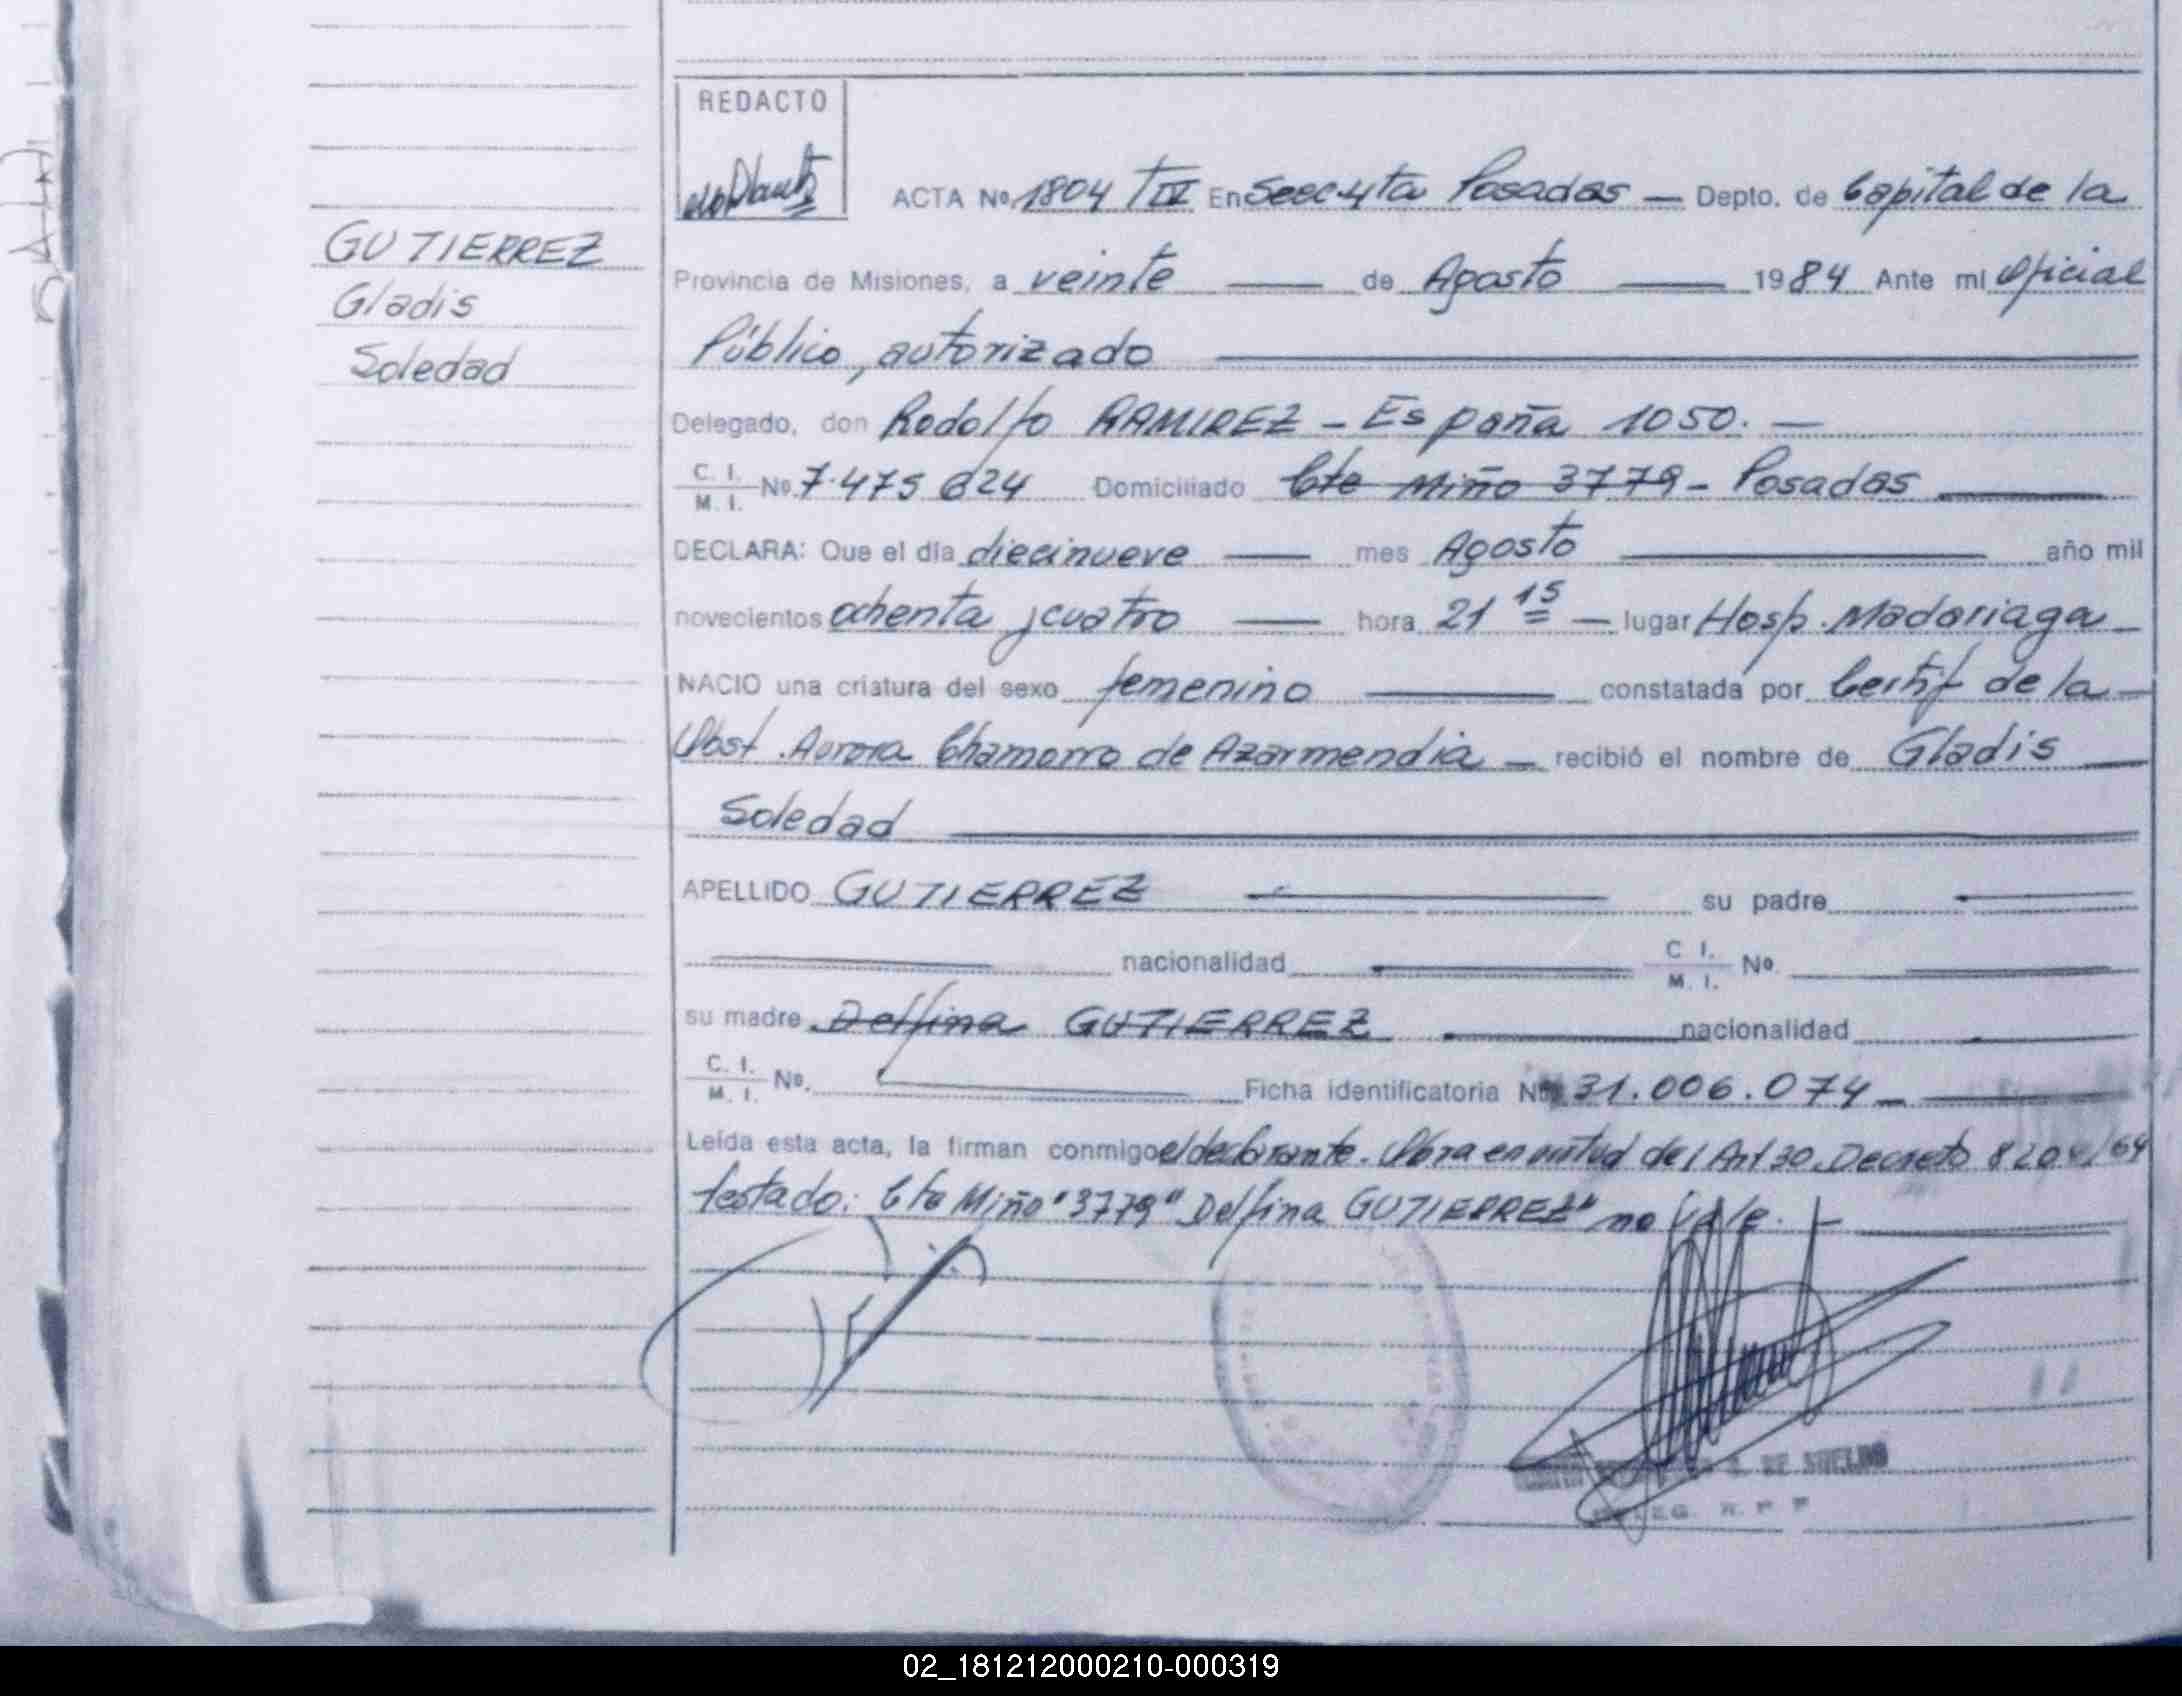 REDACTO
ACTA Nº 1804 TIV En Secc 4ta Posadas — Depto. de Capital de la
GUTIERREZ
Gladis
Soledad
Provincia de Misiones, a veinte — de Agosto — 1984 Ante mí Oficial
Público, autorizado
Delegado, don Rodolfo RAMIREZ - España 1050. —
C. I. M. I. Nº 7.475 624 Domiciliado Cte Miño 3779 - Posadas
DECLARA: Que el día diecinueve — mes Agosto — año mil
novecientos ochenta y cuatro — hora 21 15 — lugar Hosp. Madariaga —
NACIO una criatura del sexo femenino — constatada por Certif de la —
Obst. Aurora Chamorro de Azarmendia — recibió el nombre de Gladis —
Soledad
APELLIDO GUTIERREZ — su padre —
nacionalidad — C I. M. I. Nº
su madre Delfina GUTIERREZ — nacionalidad —
C. I. M. I. Nº. — Ficha identificatoria Nº 31.006.074 —
Leída esta acta, la firman conmigo el declarante. Obra en virtud del Art 30 Decreto 8204/64
testado: Cte Miño "3779" Delfina GUTIERREZ" no vale. —
DE SUELDO
02_181212000210-000319